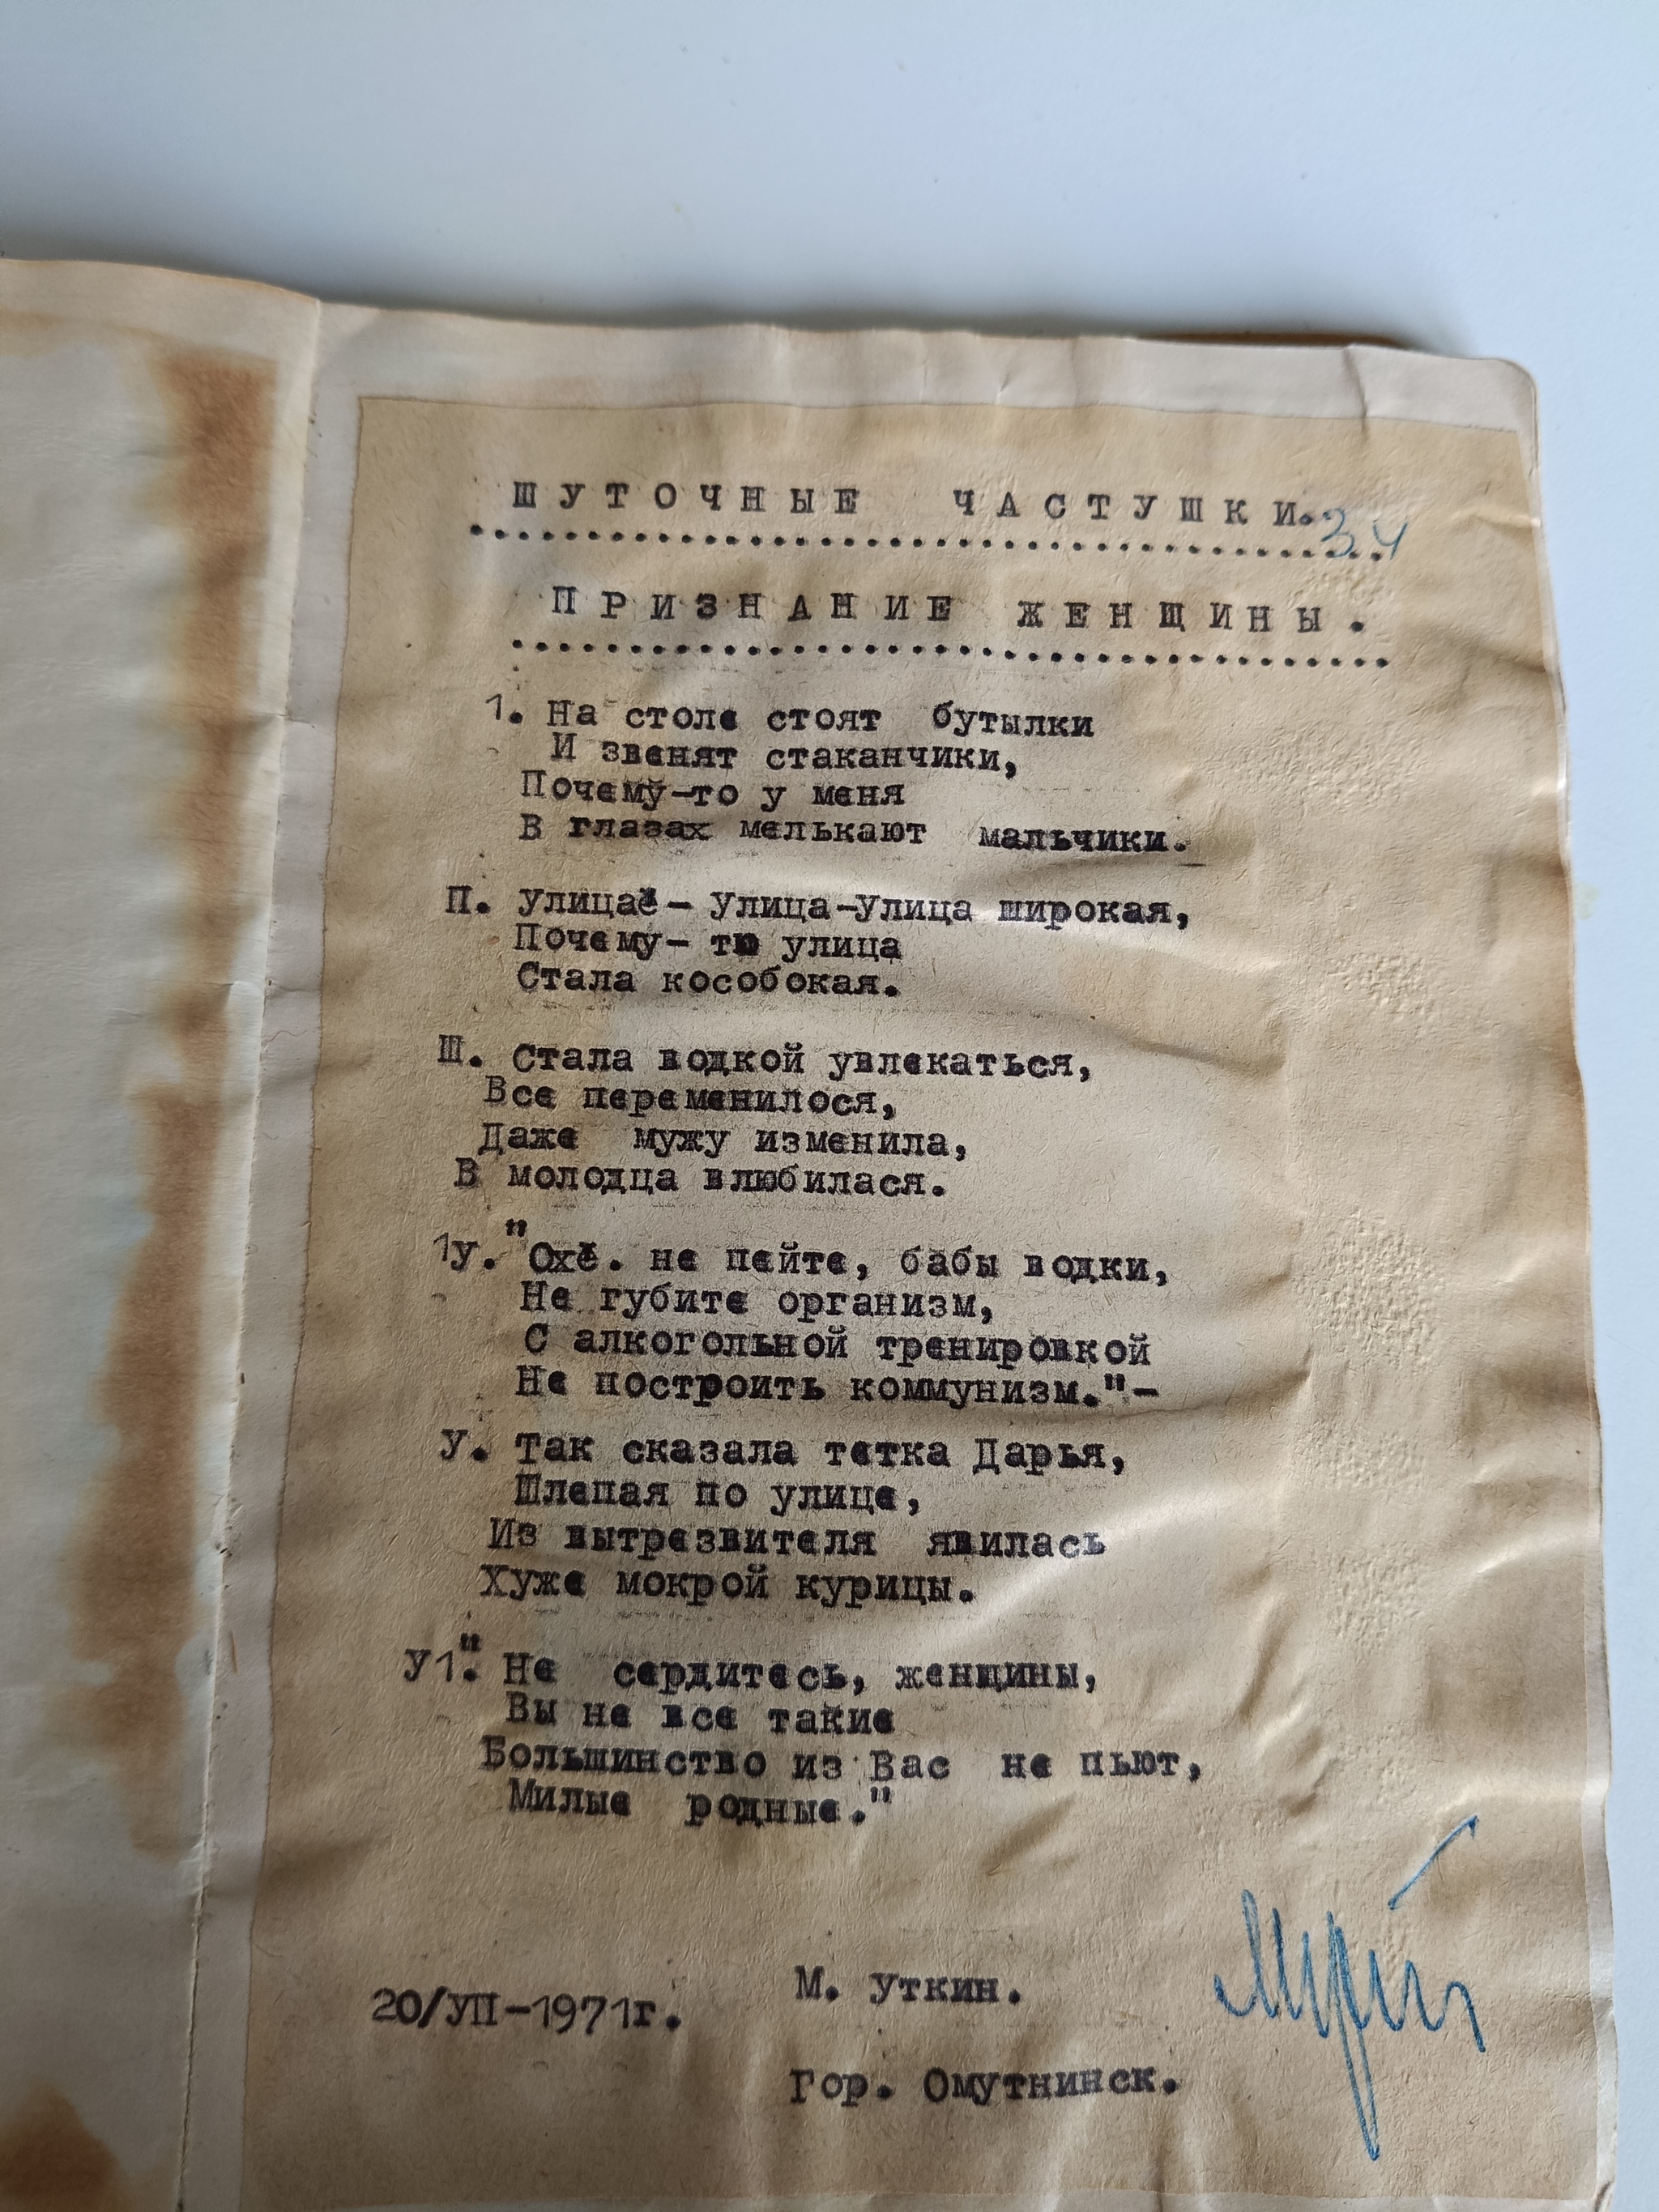 ШУТОЧНЫЕ ЧАСТУШКИ.
34
ПРИЗНАНИЕ ЖЕНЩИНЫ.
1. На столе стоят бутылки
И звенят стаканчики,
Почему-то у меня
В глазах мелькают мальчики.
П. Улица - Улица-Улица широкая,
Почему- то улица
Стала кособокая.
Ш. Стала водкой увлекаться,
Все переменилося,
Даже мужу изменила,
В молодца влюбилася.
1У. "Ох. не пейте, бабы водки,
Не губите организм,
С алкогольной тренировкой
Не построить коммунизм."-
У. Так сказала тетка Дарья,
Шлепая по улице,
Из вытрезвителя явилась
Хуже мокрой курицы.
У1." Не сердитесь, женщины,
Вы не все такие
Большинство из Вас не пьют,
Милые родные."
М. Уткин.
20/УП-1971г.
Гор. Омутнинск.